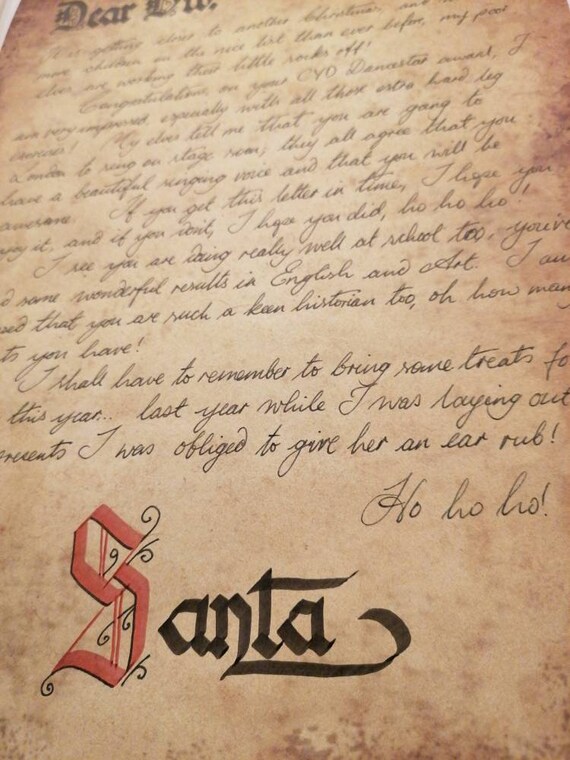 Dear
is getting close to another Christmas, and
more children on the nice list than ever before, my poor
elves are working their little socks off!
Congratulations on your CYD Dancestar award, I
am very impressed, especially with all those extra hard leg
exercises! My elves tell me that you are going to
London to sing on stage soon, they all agree that you
have a beautiful singing voice and that you will be
awesome. If you get this letter in time, I hope you
joy it, and if you don't, I hope you did, ho ho ho!
I see you are doing really well at school too, you've
d some wonderful results in English and Art. I au
sed that you are such a keen historian too, oh how many
ts you have!
I shall have to remember to bring some treats fo
this year... last year while I was laying out
presents I was obliged to give her an ear rub!
Ho ho ho!
Santa